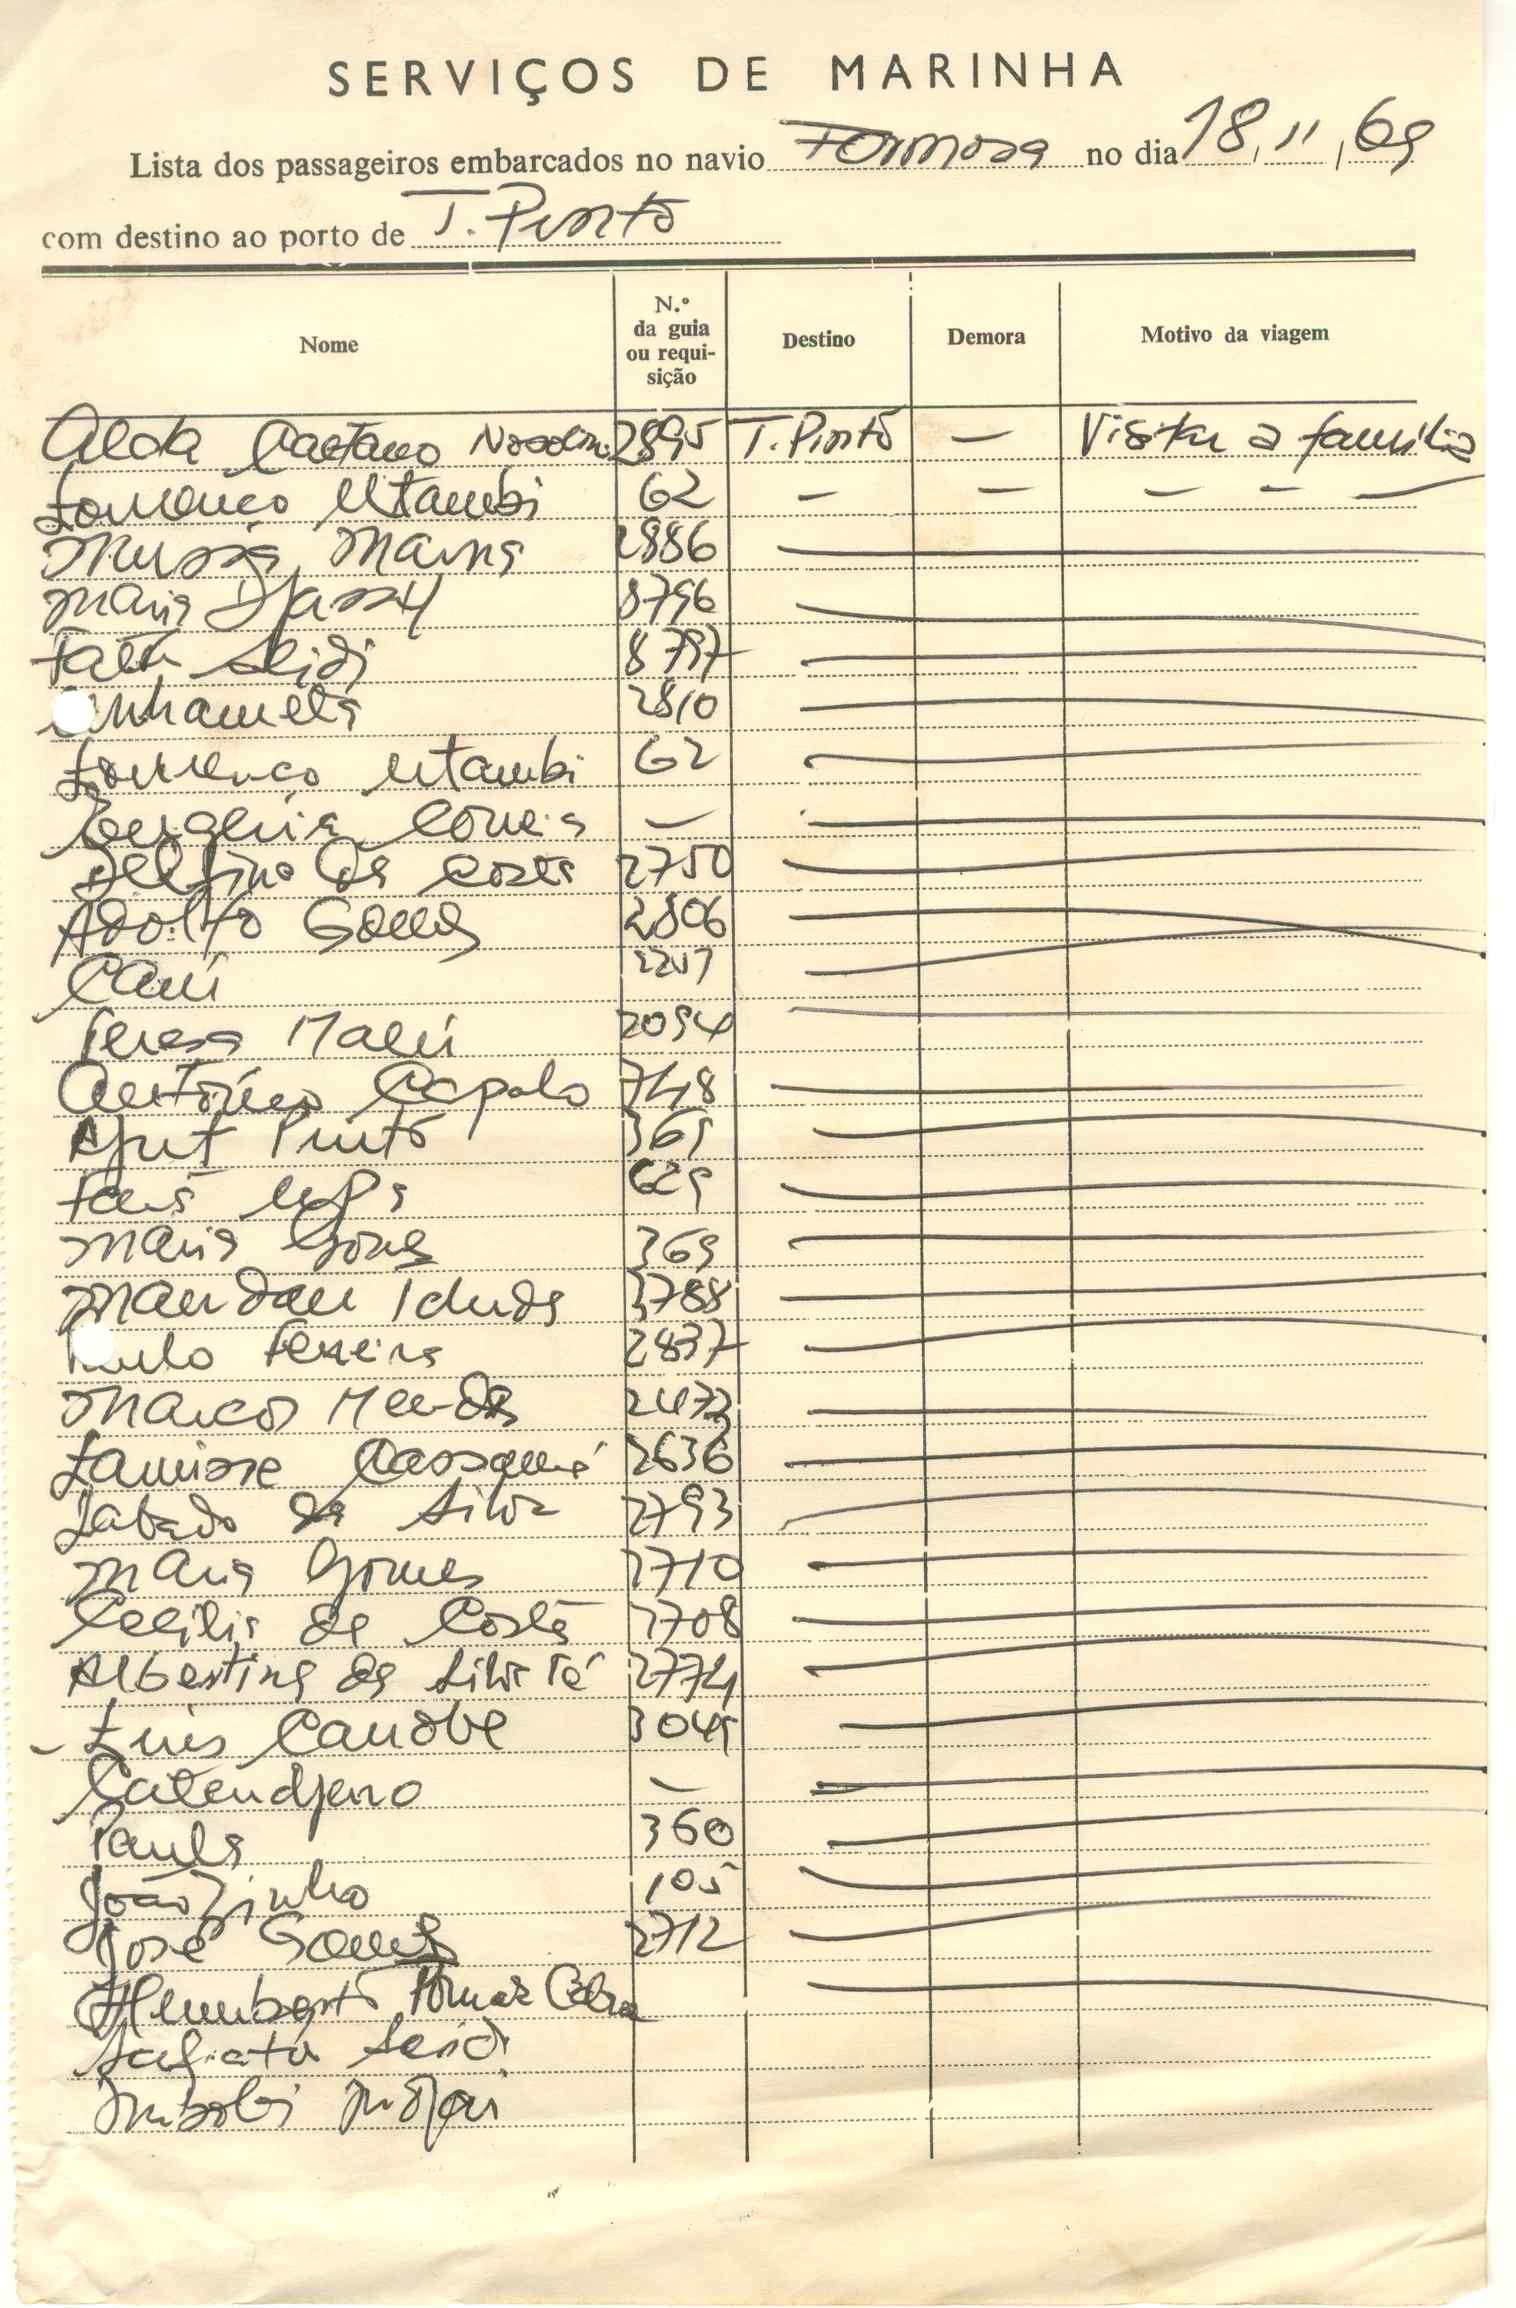 SERVIÇOS DE MARINHA
Lista dos passageiros embarcados no navio Formosa no dia 18, 11, 69
com destino ao porto de T. Pinto
Nome N.º da guia ou requi-sição Destino Demora Motivo da viagem
Alda Caetano 2895 T. Pinto — Visitar a família
Lourenço Mtambi 62 — — — — —
Mussa Mama 2886
Maria Djassy 8796
Seidi 8797
2810
Lourenço Mtambi 62
Correia —
Delfino da Costa 2750
Adolfo Gomes 2806
Cauí
Teresa Malú 2094
António Capolo 748
Pinto 369
629
Maria Gomes 369
3788
Paulo Ferreira 2837
Marcos Mendes 2473
Lamine Cassamá 2636
Sabado da Silva 2793
Maria Gomes 2710
Cecília da Costa 2708
Albertina da Silva Té 2774
- Luis 3049
Catendjeno —
Paula 360
Joãozinho 105
José Gomes 2712
Humberto
Seidi